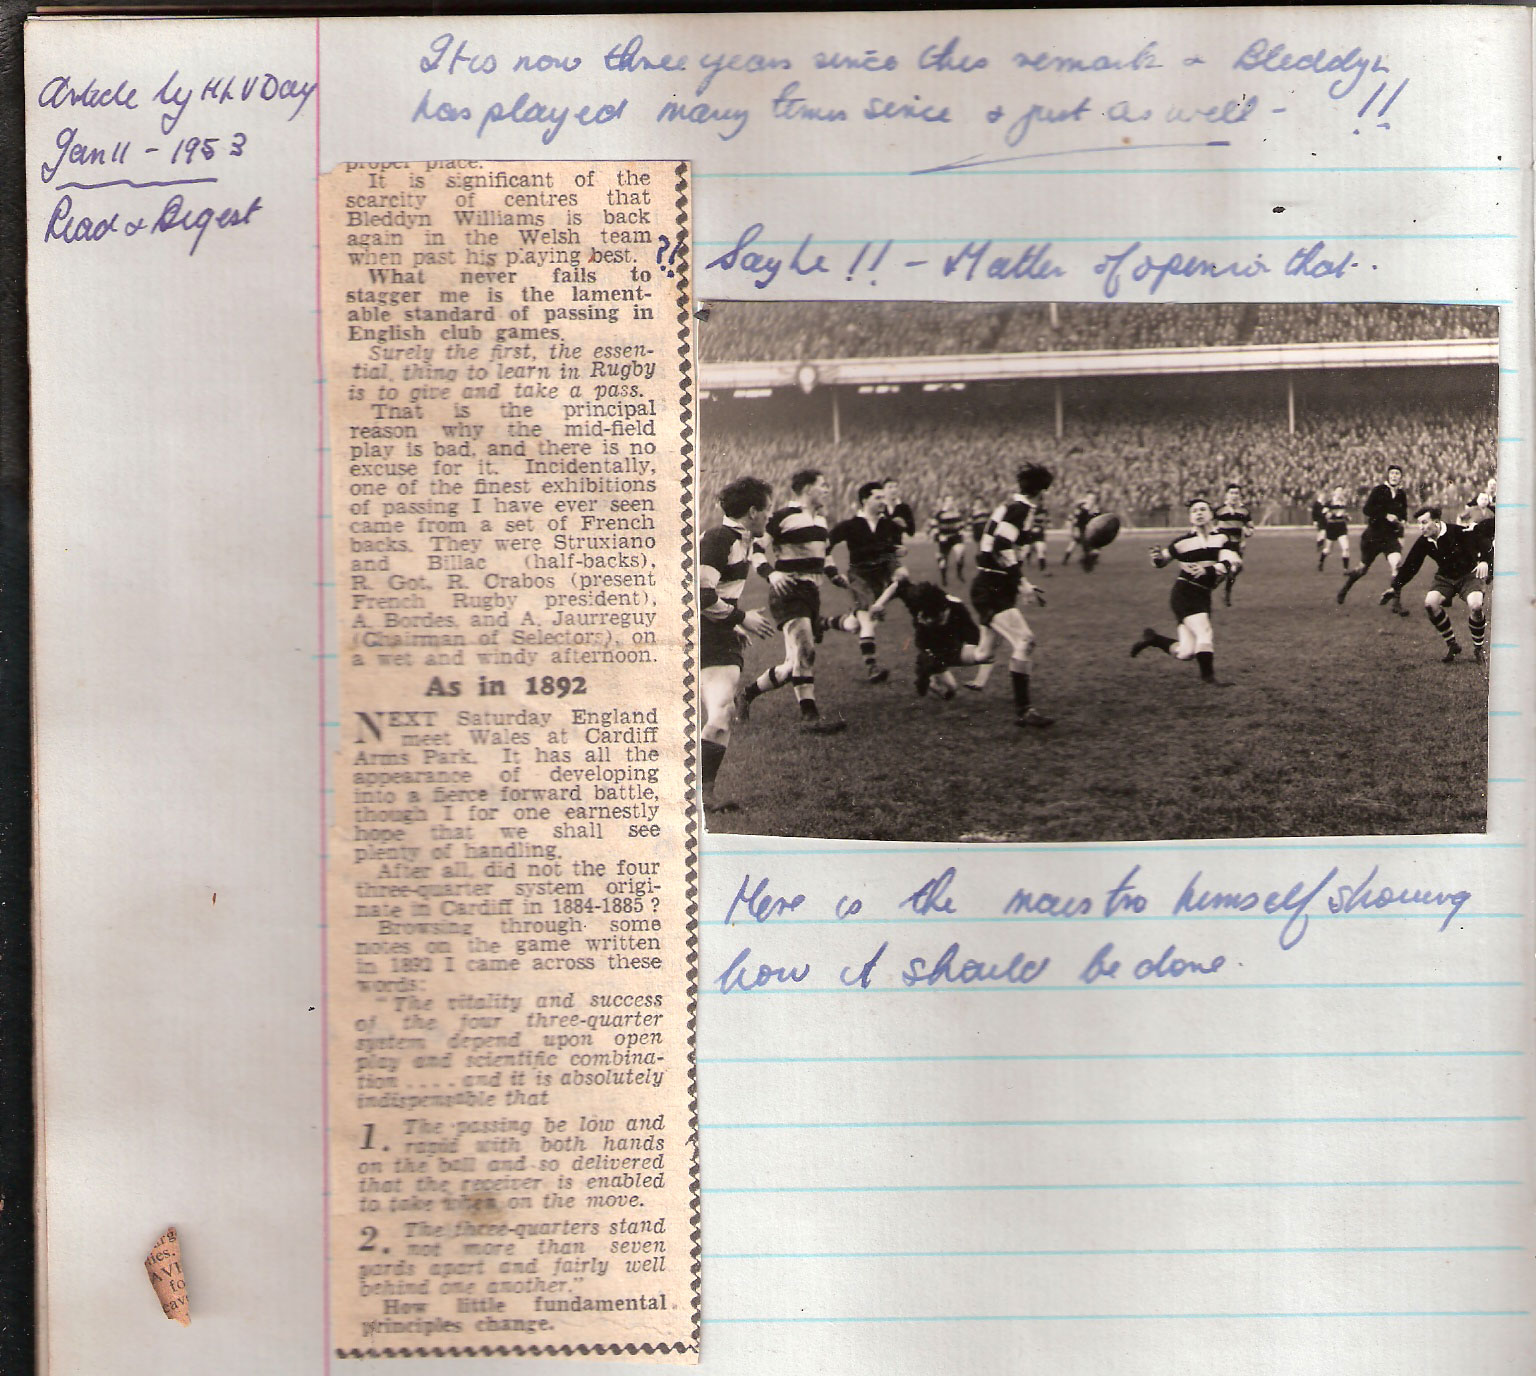 It is now three years since this remark & Bleddyn
has played many times since & just as well - !!
Article by HLV Day
Jan 11 - 1953
Read & Digest
proper place.
It is significant of the
scarcity of centres that
Bleddyn Williams is back
again in the Welsh team
when past his playing best. ?!
Says he !! - Matter of opinion that..
What never fails to
stagger me is the lament-
able standard of passing in
English club games.
Surely the first, the essen-
tial, thing to learn in Rugby
is to give and take a pass.
That is the principal
reason why the mid-field
play is bad, and there is no
excuse for it. Incidentally,
one of the finest exhibitions
of passing I have ever seen
came from a set of French
backs. They were Struxiano
and Billac (half-backs),
R. Got, R. Crabos (present
French Rugby president),
A. Bordes, and A. Jaurreguy
(Chairman of Selectors), on
a wet and windy afternoon.
As in 1892
NEXT Saturday England
meet Wales at Cardiff
Arms Park. It has all the
appearance of developing
into a fierce forward battle,
though I for one earnestly
hope that we shall see
plenty of handling.
After all, did not the four
three-quarter system origi-
nate in Cardiff in 1884-1885 ?
Browsing through some
notes on the game written
in 1892 I came across these
words:
"The vitality and success
of the four three-quarter
system depend upon open
play and scientific combina-
tion .... and it is absolutely
indispensable that
1. The passing be low and
rapid with both hands
on the ball and so delivered
that the receiver is enabled
to take when on the move.
2. The three-quarters stand
not more than seven
yards apart and fairly well
behind one another."
How little fundamental
principles change.
Here is the maestro himself showing
how it should be done.